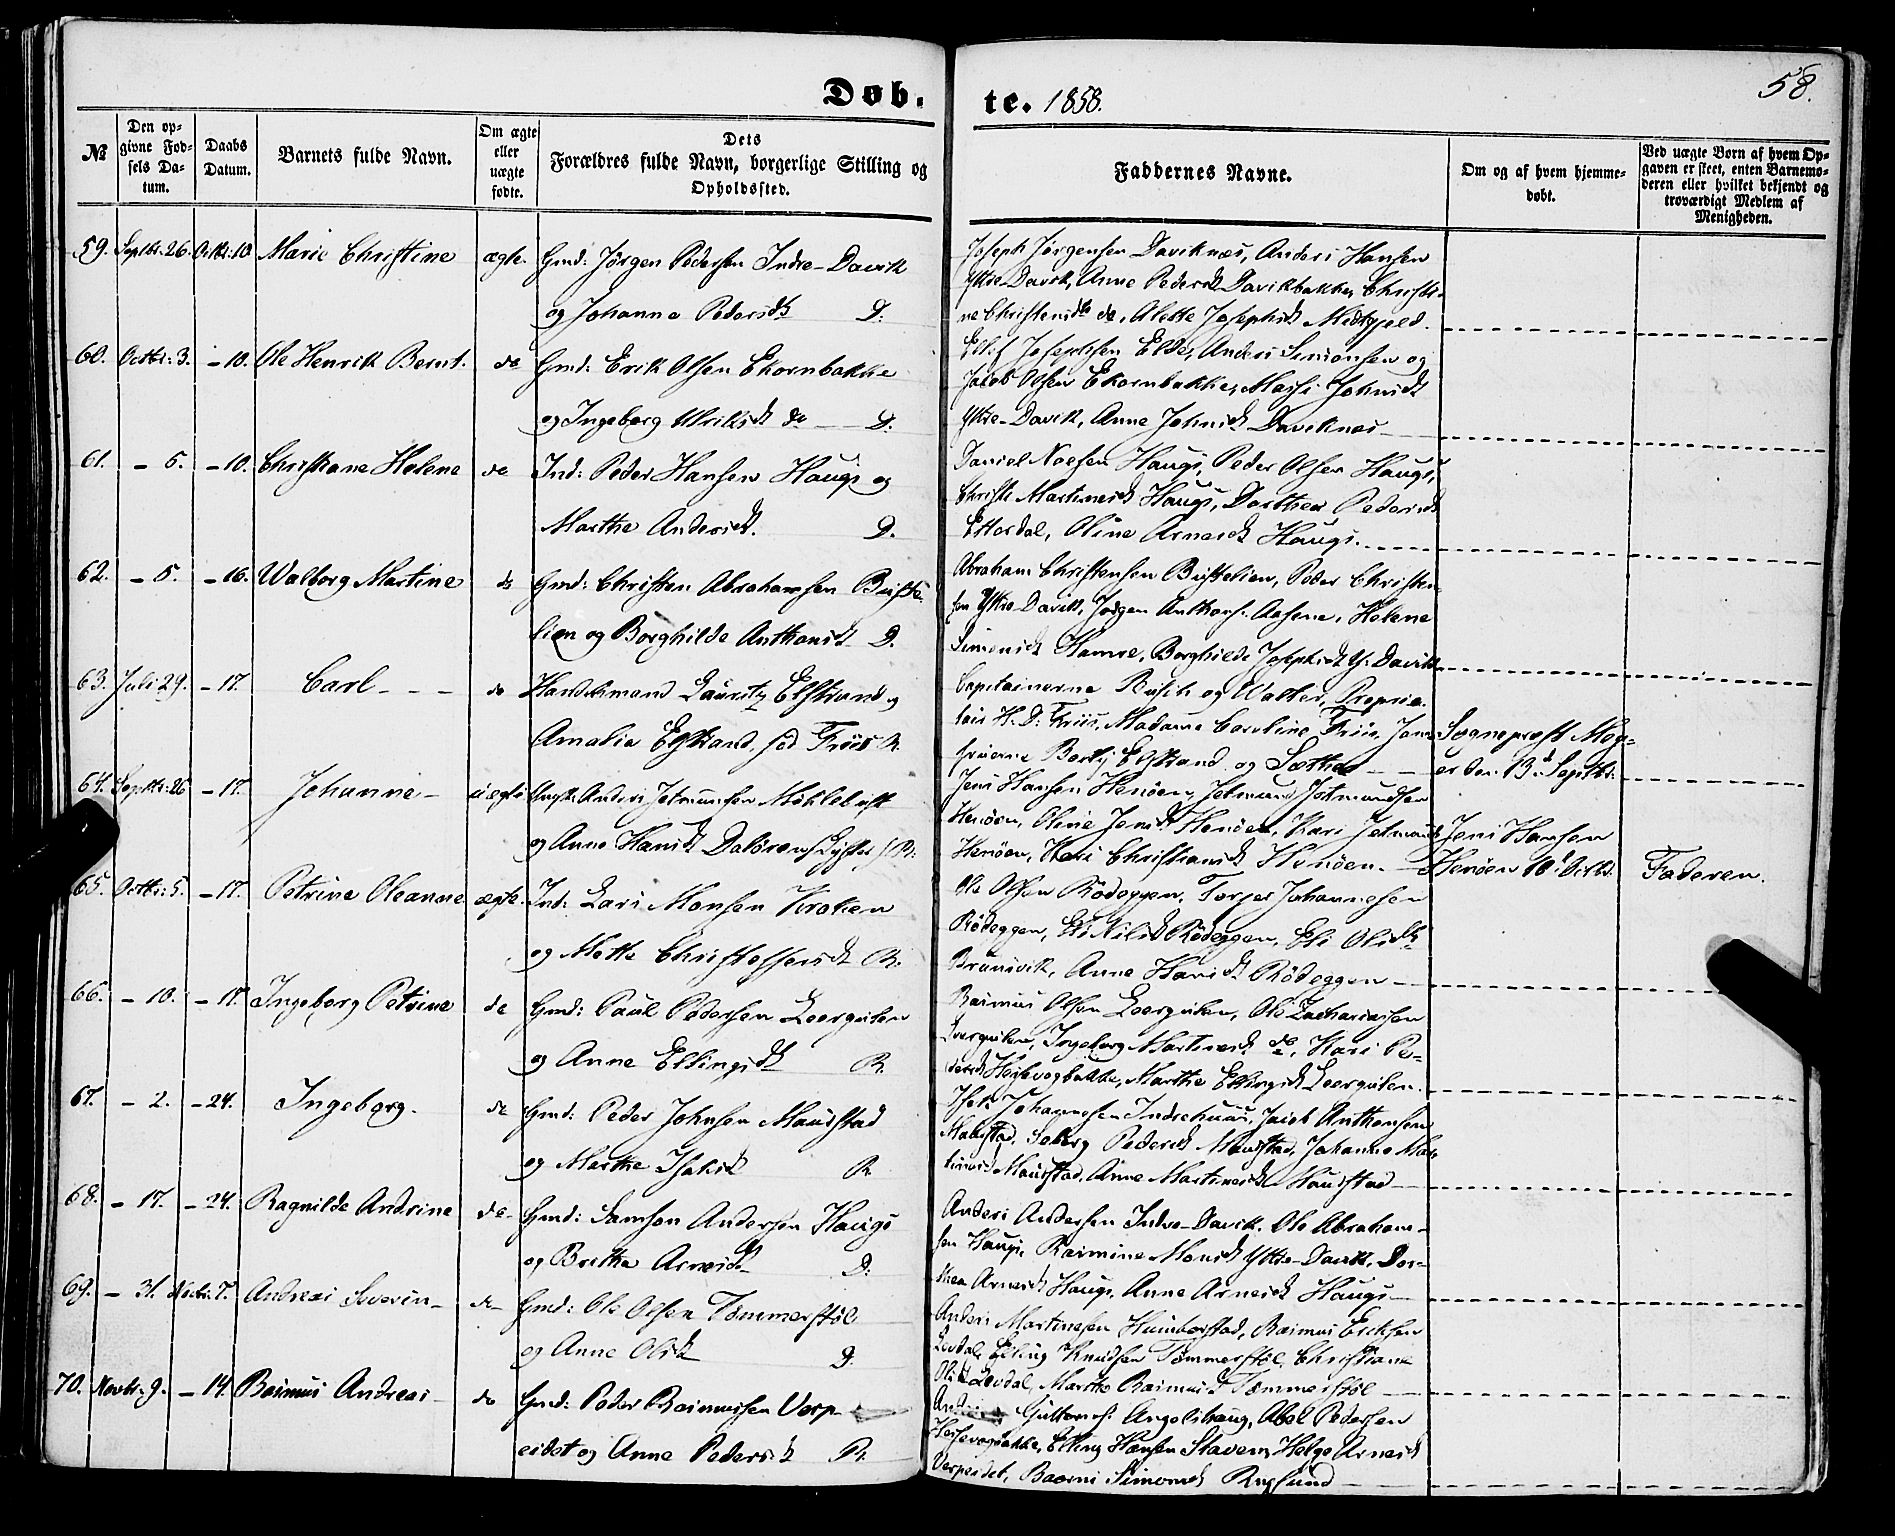 Døb.
te. 1858.
58.
№
Den op-
givne Fød-
sels Da-
tum.
Daabs
Datum.
Barnets fulde Navn.
Om ægte
eller
uægte
fødte.
Dets
Forældres fulde Navn, borgerlige Stilling og
Opholdssted.
Faddernes Navne.
Om og af hvem hjemme-
døbt.
Ved uægte Børn af hvem Op-
gaven er skeet, enten Barnemo-
deren eller hvilket bekjendt og
troværdigt Medlem af
Menigheden.
59. Septbr: 26. Octbr: 10. Marie Christine ægte. Gmd: Jørgen Pedersen Indre-Davik
og Johanne Pedersdtr D:
Joseph Jørgensen Daviknæs, Anders Hansen
Ytre-Davik, Anne Pedersdtr Davikbakke, Christi-
ne Christensdtr do, Alette Josephsdtr Midtgjeld.
60. Octbr: 3. - 10. Ole Henrik Bernt. do Gmd: Erik Olsen Ekornbakke
og Ingeborg Ulriksdt do D.
Josephsen Elde, Anders Simonsen og
Jacob Olsen Ekornbakke, Johnsdt
Ytre-Davik, Anne Johnsdt Daviknæs
61. - 5. - 10. Christiane Helene do Ind: Peder Hansen Haugs og
Marthe Andersdt. D.
Daniel Haugs, Peder Olsen Haugs,
Christi Martinesdt Haugs, Dorthea Pedersdt
Oline Arnesdt Haugs.
62. - 5. - 16. Walborg Martine do Gmd: Christen Abrahamsen Buste-
lien og Borghilde Anthonsdt D.
Abraham Christensen Bustelien, Peder Christen-
sen Ytre-Davik, Jørgen Anthons: Aasene, Helene
Simonsdt Hamre, Borghilde Josephsdt Y: Davik
63. Juli 29. - 17. Carl - - - do Handelsmand Lauritz Elstrand og
Amalia Elstrand, fød Friis R.
Capitainerne Rusch og Walter, Proprie-
tair H. D: Friis, Madame Caroline Friis, Jom-
fruerne Elstrand og Sæther
Sogneprest
er den 13d Septbr:
64. Septbr: 26 - 17. Johanne - uægte Ungk: Anders Jetmundsen Møhlebust
og Anne Hansdt
Jens Hansen Henøen, Jetmund Jetmundsen
Henøen, Oline Jensdt Henøen, Kari Jetmundsdt
Henøen, Kari Christiansdt Henøen.
Jens Hansen
Henøen 10d Octbr.
Faderen.
65. Octbr: 5. - 17. Petrine Oleanne ægte. Ind: Lars Monsen Kroken
og Mette Christophersdt R.
Ole Olsen Rødeggen, Torger Johannesen
Rødeggen, Eli Nilsdt Rødeggen, Eli Olsdtr
Anne Hansdt Rødeggen
66. - 10. - 17. Ingeborg Petrine do Gmd: Paul Pedersen Leergulen
og Anne Ellingsdt R.
Rasmus Olsen Leergulen, Ole Zachariassen
Leergulen, Ingeborg Martinesdt do, Kari Pe-
dersdt Hessevagbakke, Marthe Ellingsdt Leergulen.
67. - 2. - 24. Ingeborg. do Gmd: Peder Johnsen Maurstad
og Marthe Isaksdt R.
Johannesen Indrehuus, Jacob Anthonsen
Maurstad, Solborg Pedersdt Maurstad, Johanne Mar-
tinusd Maurstad, Anne Martinesdt Maurstad
68. - 17. - 24. Ragnilde Andrine do- Gmd: Samson Andersen Haugs
og Brithe Arnesdt D.
Anders Andersen Indre-Davik, Ole Abraham-
sen Haugs, Rasmine Monsdt Ytre-Davik, Dor-
thea Arnesdt Haugs, Anne Arnesdt Haugs
69. - 31. Novbr: 7. Andreas Severin do- Gmd: Ole Olsen Tømmerstøl
og Anne Olsdt D.
Anders Martinesen Humborstad, Rasmus Eriksen
Levdal, Elling Knudsen Tømmerstøl, Christiane
Olsdt Levdal, Marthe Rasmusdt Tømmerstøl
70. Novbr: 9. - 14. Rasmus Andreas do Gmd: Peder Rasmussen Verp-
eidet og Anne Pedersdt R.
Guttorms: Angelshaug, Abel Pedersen
Hessevagbakke, Elling Hansen Staveng, Helge Arnesdt
Verpeidet, Simonsdt Rugsund